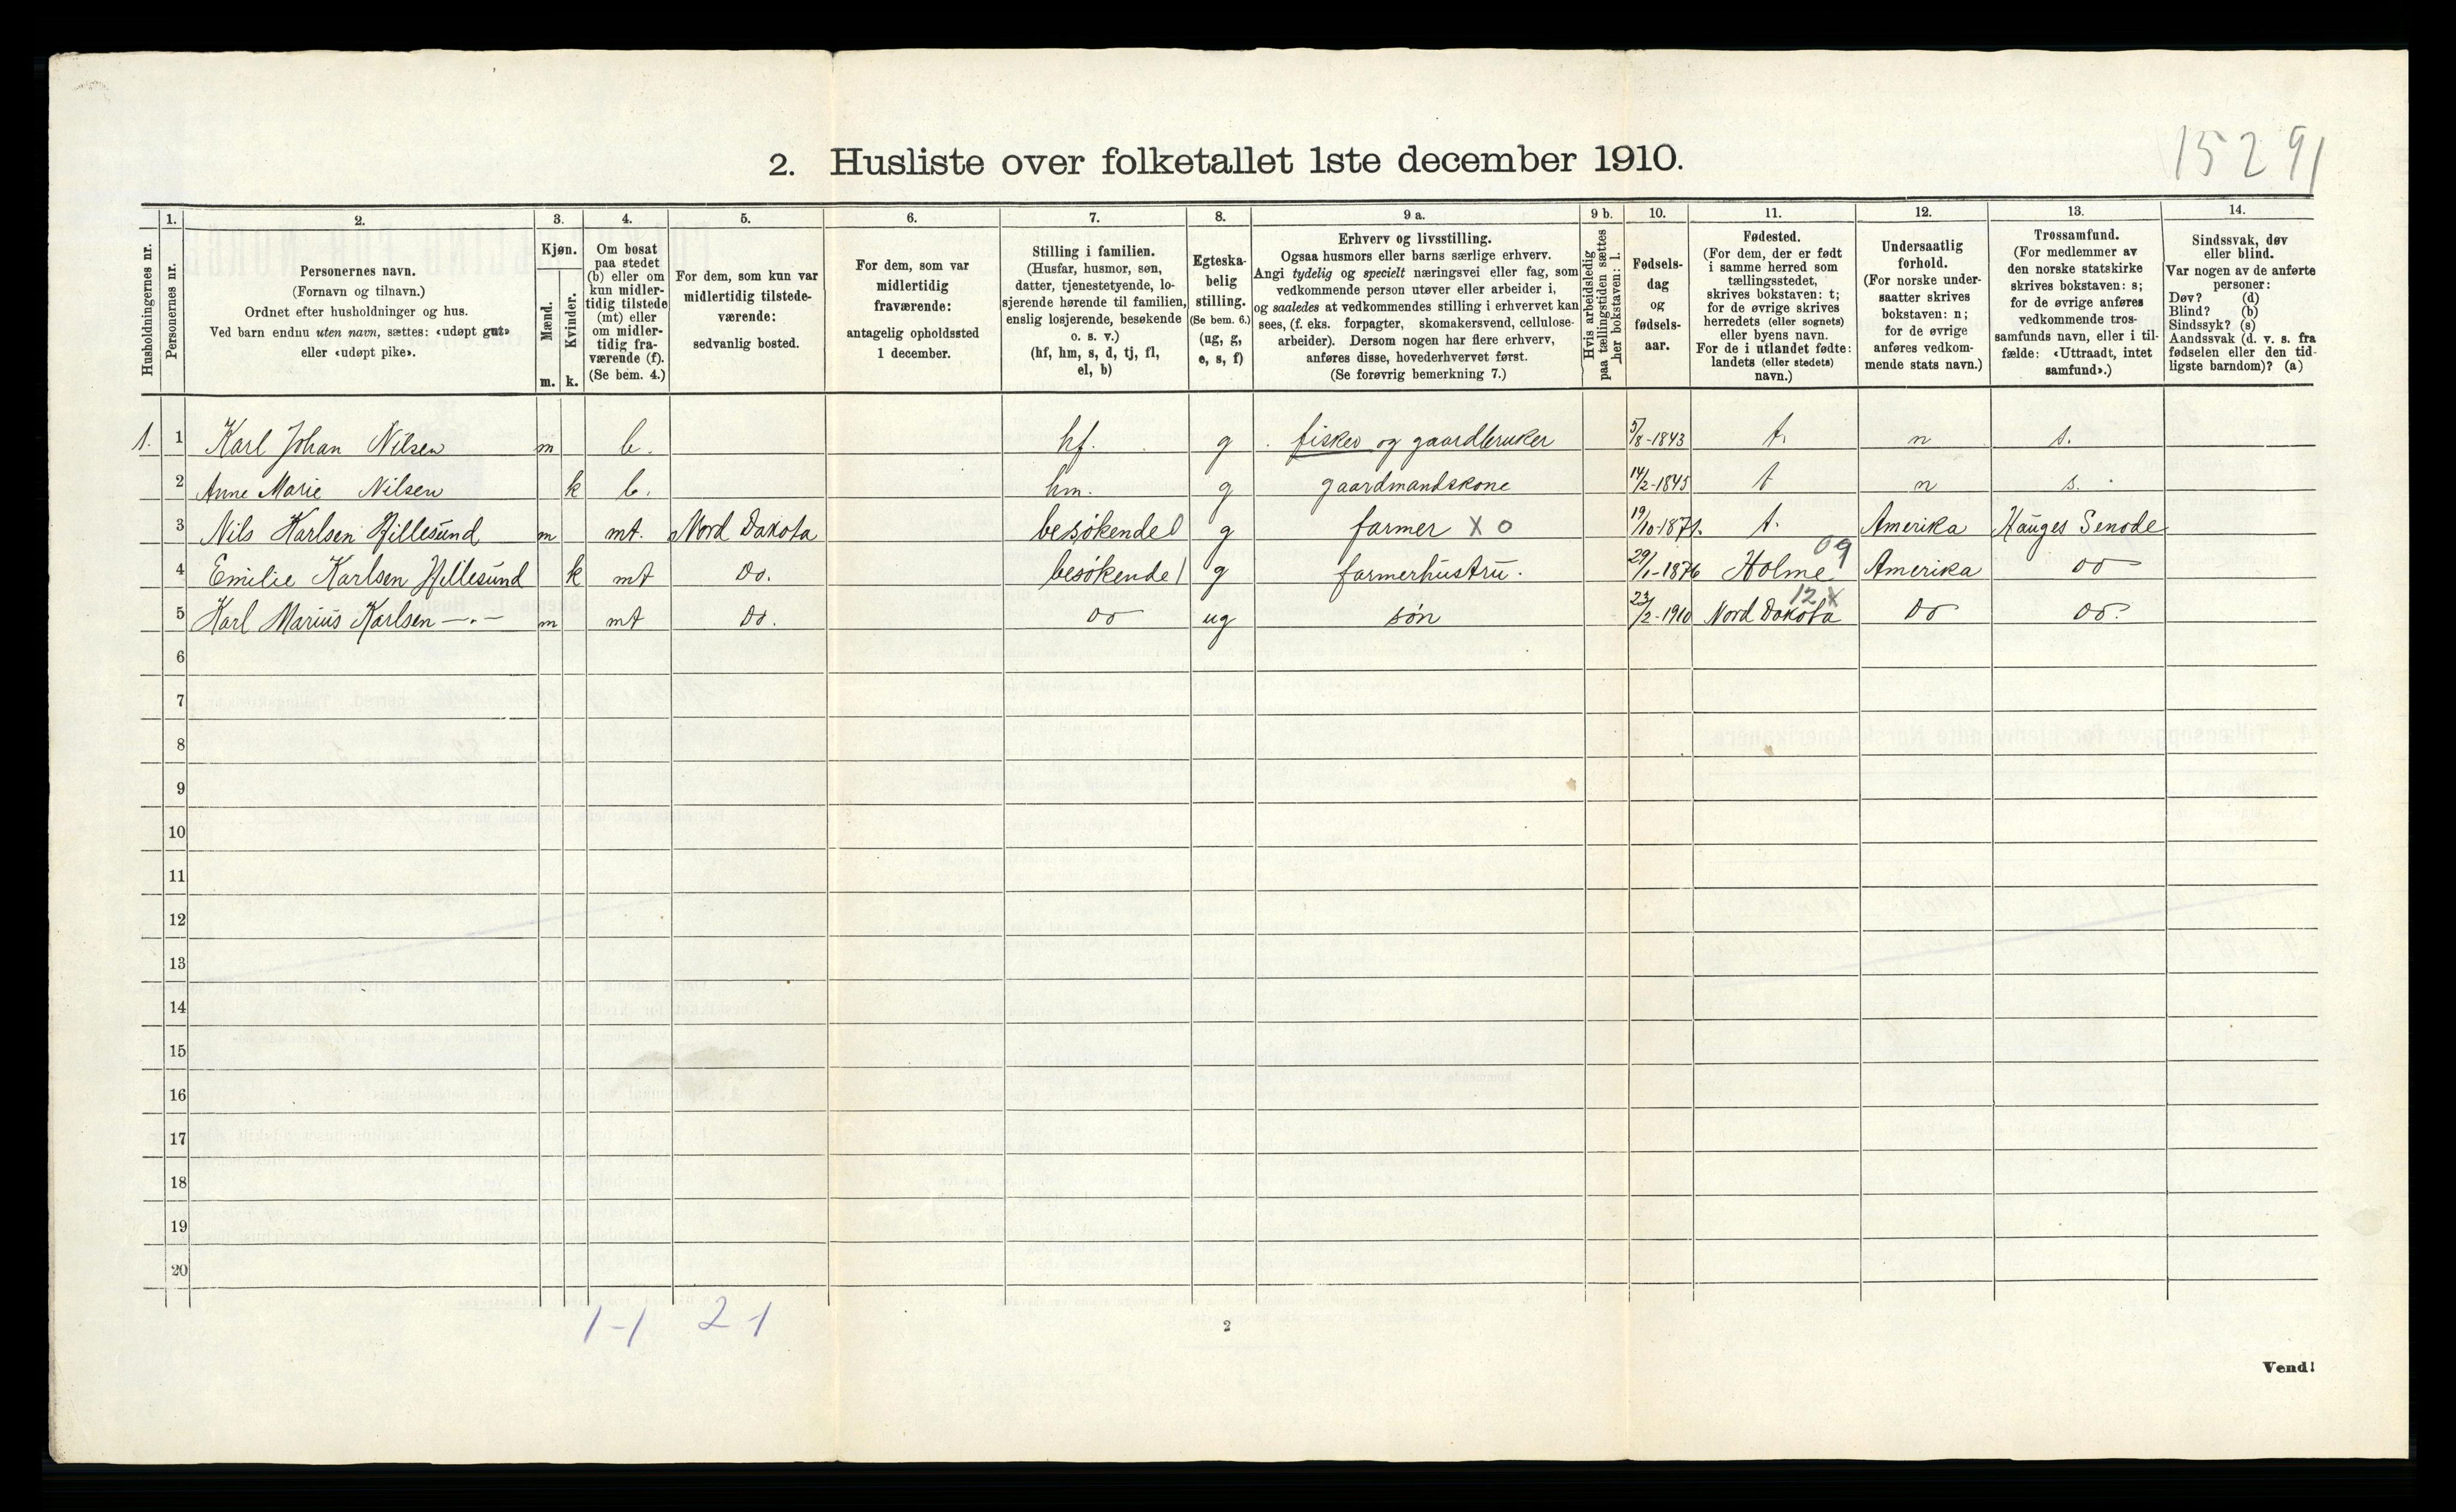 15291
2. Husliste over folketallet 1ste december 1910.
Husholdningernes nr.
1.
Personernes nr.
2.
Personernes navn.
(Fornavn og tilnavn.)
Ordnet efter husholdninger og hus.
Ved barn endnu uten navn, sættes: «udøpt gut»
eller «udøpt pike».
3.
Kjøn.
Mænd.
Kvinder.
m. k.
4.
Om bosat
paa stedet
(b) eller om
kun midler-
tidig tilstede
(mt) eller
om midler-
tidig fra-
værende (f).
(Se bem. 4.)
5.
For dem, som kun var
midlertidig tilstede-
værende:
sedvanlig bosted.
6.
For dem, som var
midlertidig
fraværende:
antagelig opholdssted
1 december.
7.
Stilling i familien.
(Husfar, husmor, søn,
datter, tjenestetyende, lo-
sjerende hørende til familien,
enslig losjerende, besøkende
o. s. v.)
(hf, hm, s, d, tj, fl,
el, b)
8.
Egteska-
belig
stilling.
(Se bem. 6.)
(ug, g,
e, s, f)
9 a.
Erhverv og livsstilling.
Ogsaa husmors eller barns særlige erhverv.
Angi tydelig og specielt næringsvei eller fag, som
vedkommende person utøver eller arbeider i,
og saaledes at vedkommendes stilling i erhvervet kan
sees, (f. eks. forpagter, skomakersvend, cellulose-
arbeider). Dersom nogen har flere erhverv,
anføres disse, hovederhvervet først.
(Se forøvrig bemerkning 7.)
9 b.
Hvis arbeidsledig
paa tællingstiden sættes
her bokstaven: l.
10.
Fødsels-
dag
og
fødsels-
aar.
11.
Fødested.
(For dem, der er født
i samme herred som
tællingsstedet,
skrives bokstaven: t;
for de øvrige skrives
herredets (eller sognets)
eller byens navn.
For de i utlandet fødte:
landets (eller stedets)
navn.)
12.
Undersaatlig
forhold.
(For norske under-
saatter skrives
bokstaven: n;
for de øvrige
anføres vedkom-
mende stats navn.)
13.
Trossamfund.
(For medlemmer av
den norske statskirke
skrives bokstaven: s;
for de øvrige anføres
vedkommende tros-
samfunds navn, eller i til-
fælde: «Uttraadt, intet
samfund».)
14.
Sindssvak, døv
eller blind.
Var nogen av de anførte
personer:
Døv? (d)
Blind? (b)
Sindssyk? (s)
Aandssvak (d. v. s. fra
fødselen eller den tid-
ligste barndom)? (a)
1. 1 Karl Johan Nilsen m b. hf. g fisker og gaardbruker 5/8-1843 t. n s.
2 Anne Marie Nilsen k b. hm. g gaardmandskone 14/2-1845 t n s.
3 Nils Karlsen Hillesund m mt. Nord Dakota besøkende g farmer X o 19/10-1871. t. Amerika Hauges Senode
4 Emilie Karlsen Hillesund k mt Do. besøkende g farmerhustru. 29/1-1876 Holme 09 Amerika Do
5 Karl Marius Karlsen —„— m mt Do. Do ug søn 23/2-1910 Nord Dakota 12 x Do Do.
6
7
8
9
10
11
12
13
14
15
16
17
18
19
20
1-1 2 1
2
Vend!